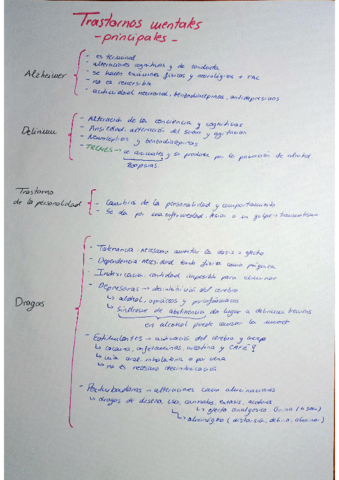 Trastornos mentales
- principales -
Alzheimer
- es terminal
- alteraciones cognitivas y de conducta
- se hacen exámenes físicos y neurológicos + TAC
- no es reversible
- actividad neuronal, benzodiacepinas, antidepresivos
Delirium
- Alteración de la conciencia y cognitivas
- Ansiedad, alteración del sueño y agitación
- Neurolepticos y benzodiacepinas
- → se y se produce por la de alcohol
Trastorno
de la personalidad
- Cambio de la personalidad y comportamiento
- Se da por una enfermedad física o un golpe = traumatismo
Drogas
- Tolerancia: necesario aumentar la dosis = efecto
- Dependencia: necesidad tanto física como psíquica
- Intoxicación: cantidad imposible para eliminar
- Depresoras → desinhibición del cerebro
↳ alcohol, opiáceos y
↳ Síndrome de abstinencia da lugar a delirium tremens
en alcohol puede causar la muerte
- Estimulantes → activación del cerebro y cuerpo
↳ cocaína, anfetaminas, nicotina y
↳ vía oral, inhalatoria o por vena
↳ no es necesario desintoxicación
- Perturbadoras → alteraciones causa alucinaciones
↳ drogas de diseño, cannabis, extasis,
↳ efecto
↳ alucinógeno (distorsión, delirio,